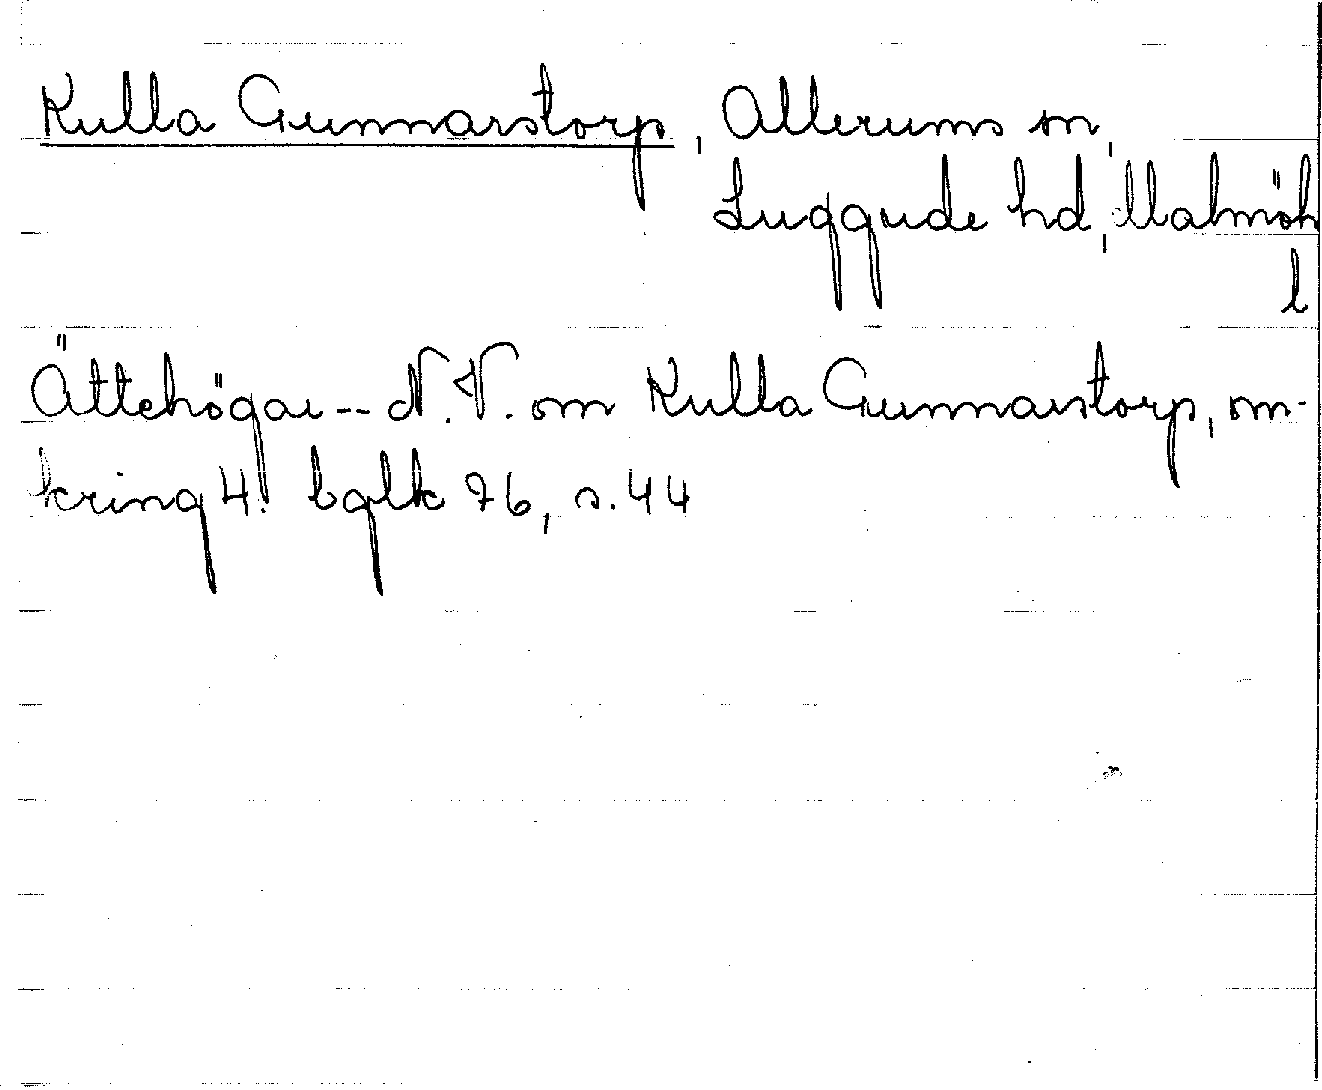 Kulla Gunnarstorp, Allerums sn,
Luggude hd, Malmöh
l
Ättehögar -- N.V. om Kulla Gunnarstorp, om-
kring 4. bglk 76, s. 44